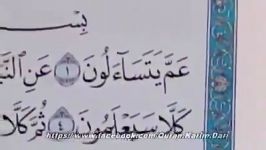 بِسْـ
عَمَّ يَتَسَاءَلُونَ ١ عَنِ
كَلَّا سَيَعْلَمُونَ ٤ ثُمَّ كَلَّا
https://www.facebook.com/Quran.Karim.Dari